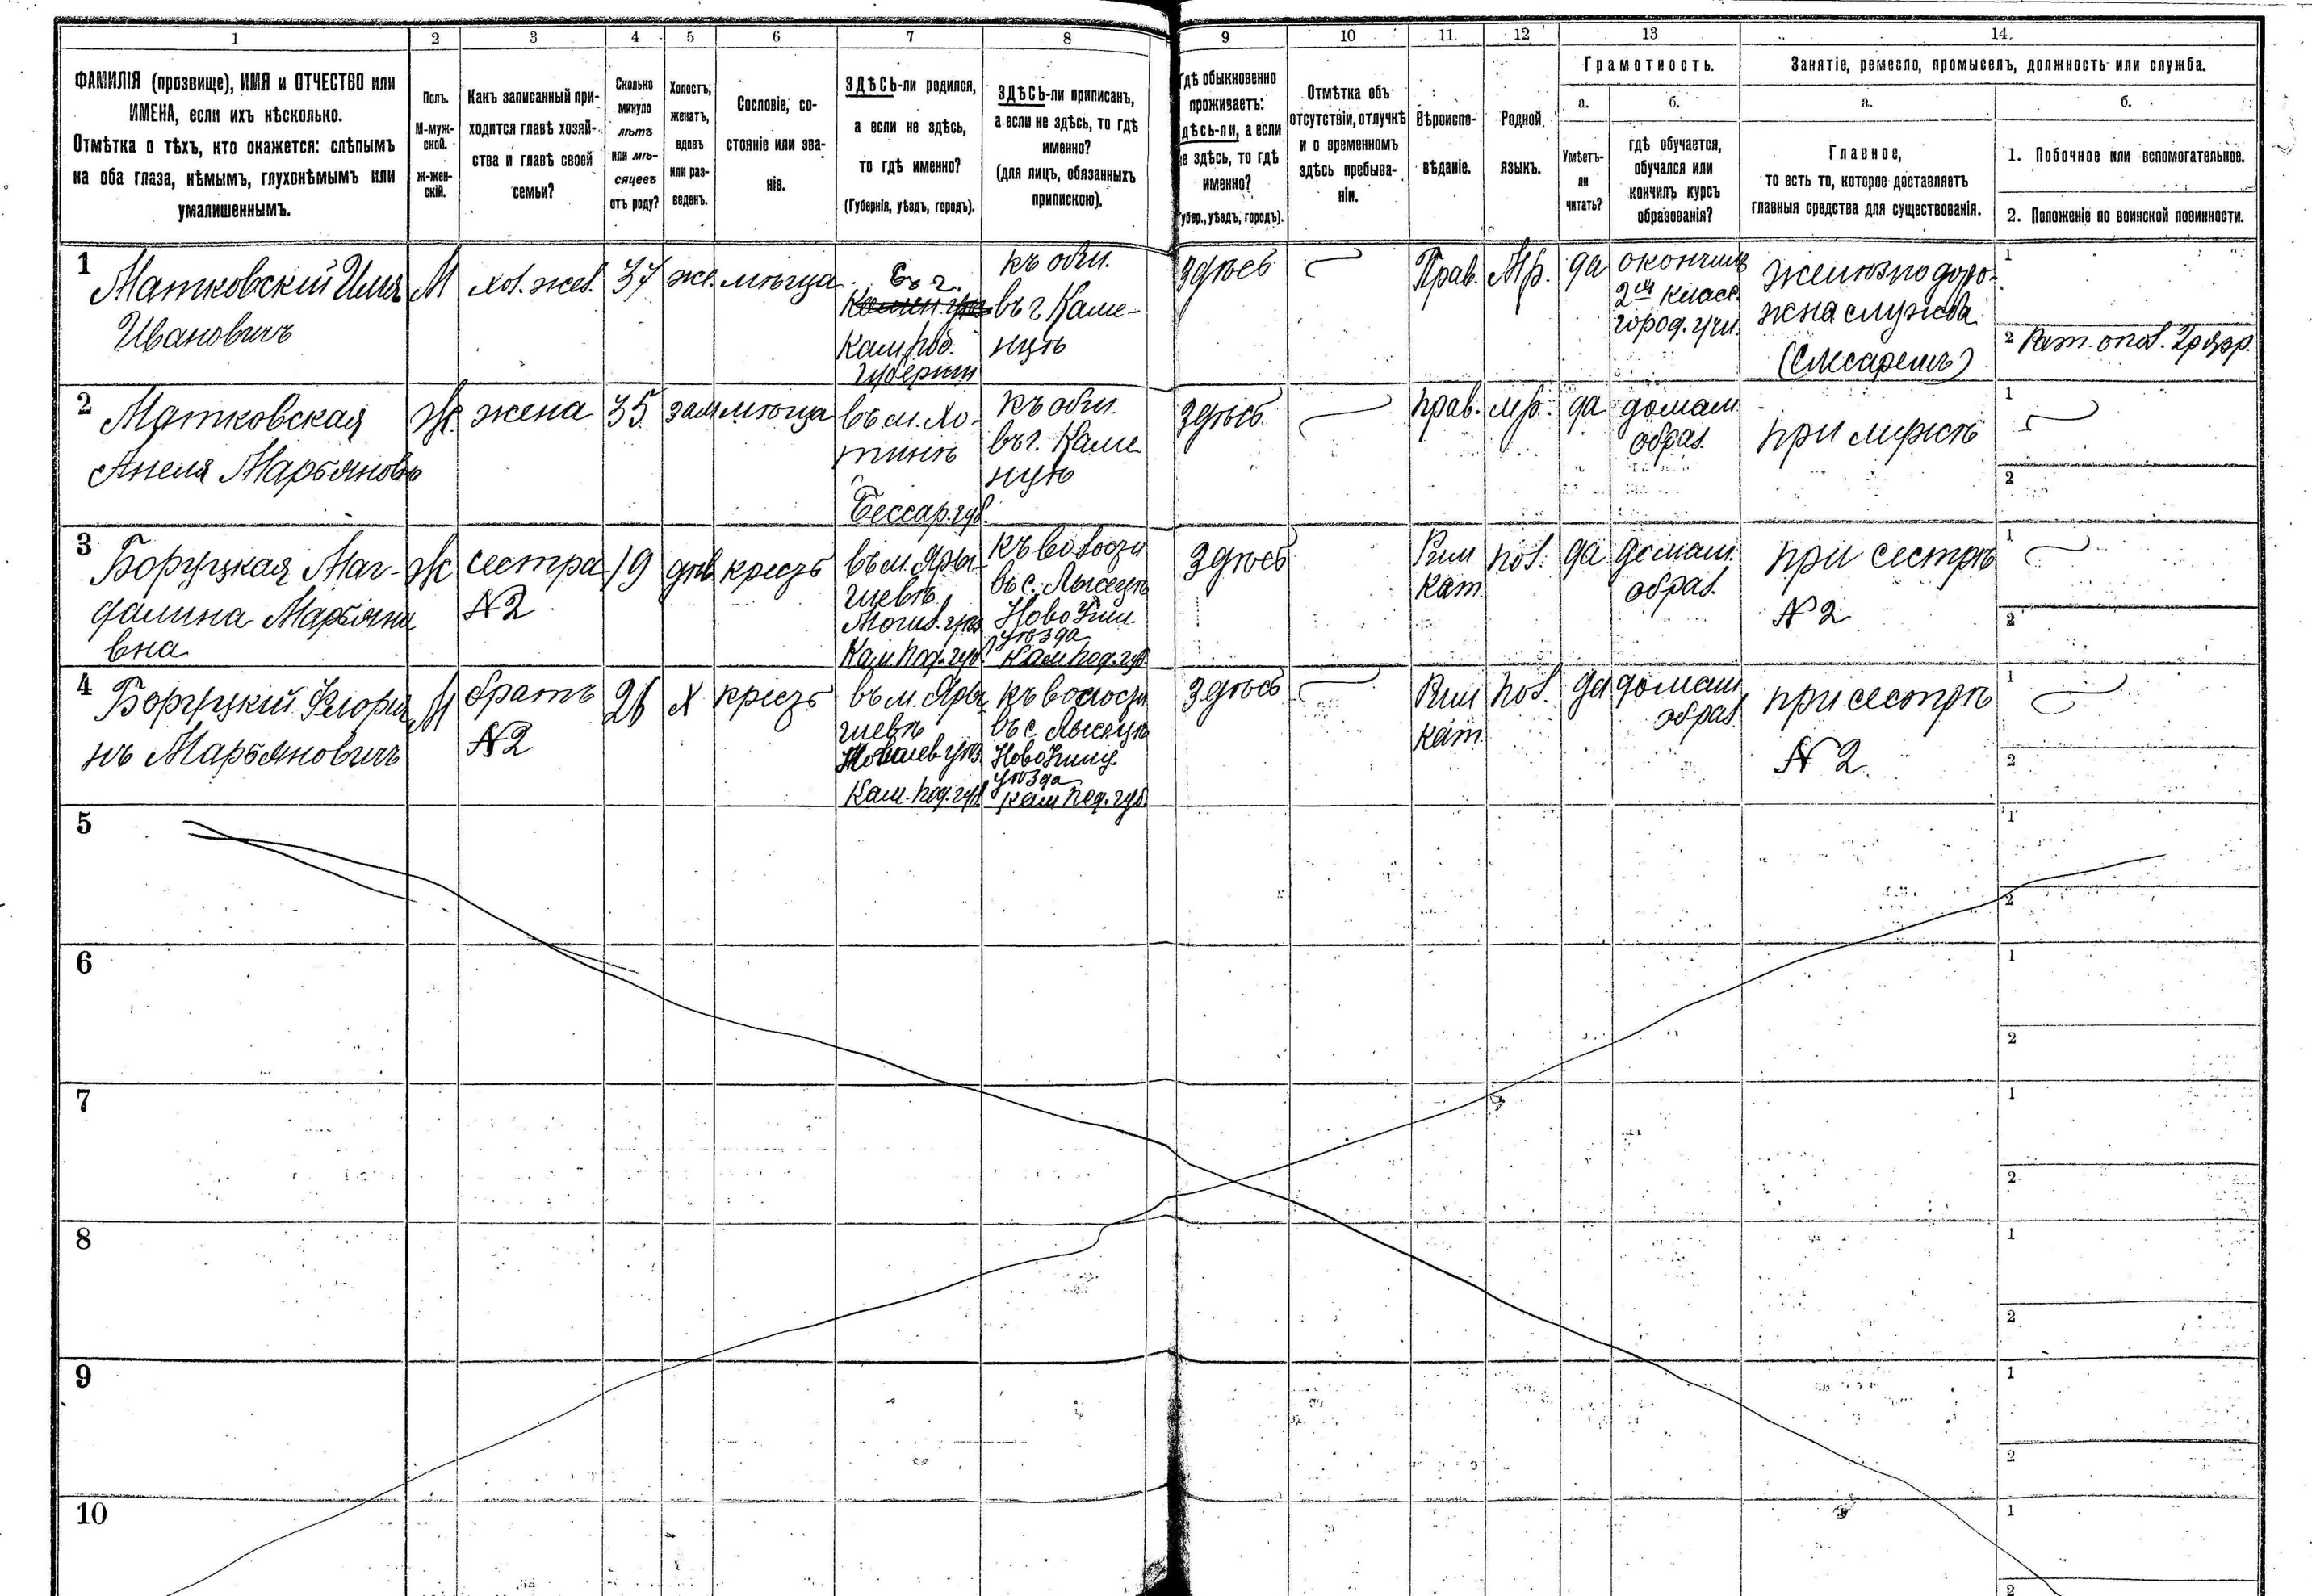 1 2 3 4 5 6 7 8 9 10 11 12 13 14.
ФАМИЛІЯ (прозвище), ИМЯ и ОТЧЕСТВО или
ИМЕНА, если ихъ нѣсколько.
Отмѣтка о тѣхъ, кто окажется: слѣпымъ
на оба глаза, нѣмымъ, глухонѣмымъ или
умалишеннымъ.
Полъ.
М-муж-
ской.
ж-жен-
скій.
Какъ записанный при-
ходится главѣ хозяй-
ства и главѣ своей
семьи?
Сколько
минуло
лѣтъ
или мѣ-
сяцевъ
отъ роду?
Холостъ,
женатъ,
вдовъ
или раз-
веденъ.
Сословіе, со-
стояніе или зва-
ніе.
ЗДѢСЬ-ли родился,
а если не здѣсь,
то гдѣ именно?
(Губернія, уѣздъ, городъ).
ЗДѢСЬ-ли приписан,
а если не здѣсь, то гдѣ
именно?
(для лицъ, обязанныхъ
припискою).
гдѣ обыкновенно
проживаетъ:
здѣсь-ли, а если
не здѣсь, то гдѣ
именно?
(Губер., уѣздъ, городъ).
Отмѣтка объ
отсутствіи, отлучкѣ
и о временномъ
здѣсь пребыва-
ніи.
Вѣроиспо-
вѣданіе.
Родной
языкъ.
Грамотность.
а.
Умѣетъ-
ли
читать?
б.
гдѣ обучается,
обучался или
кончилъ курсъ
образованія?
Занятіе, ремесло, промыселъ, должность или служба.
а.
Главное,
то есть то, которое доставляетъ
главныя средства для существованія.
б.
1. Побочное или вспомогательное.
2. Положеніе по воинской повинности.
1
Матковскій Илья
Ивановичъ
М
хоз. жел.
37
же.
мѣща
въ г.
Кам. Под.
губерніи
къ общ.
въ г. Каме-
нцѣ
здѣсь
Прав.
Мр.
да
окончилъ
2хъ класс.
город. учи.
желѣзнодоро-
жна служба
(слесаремъ)
1
2
2
Матковская
Анеля Марьяновн
Ж.
жена
35
зам
мѣща
въ м. Хо-
тинѣ
Бессар. губ.
къ общ.
въ г. Каме
нцѣ
здѣсь
прав.
мр.
да
домаш.
образ.
при мужѣ
1
2
3
Боруцкая Маг-
далина Марьяно
вна
Ж
сестра
№2
19
дѣв.
кресть
въ м. Яры-
шевѣ
Могил. уѣз
Кам. Под. губ.
къ волости
въ с.
Ново Ушиц.
уѣзда
Кам. Под. губ.
здѣсь
Рим
кат.
пол.
да
домаш.
образ.
при сестрѣ
№2
1
2
4
Боруцкій Флоріа
нъ Марьяновичъ
М
братъ
№2
26
Х
кресть
въ м. Яры
шевѣ
Могилев. уѣз.
Кам. Под. губ.
къ волости
въ с.
Ново Ушиц.
уѣзда
Кам. Под. губ.
здѣсь
Рим
кат.
пол.
да
домаш.
образ.
при сестрѣ
№2.
1
2
5
1
2
6
1
2
7
1
2
8
1
2
9
1
2
10
1
2